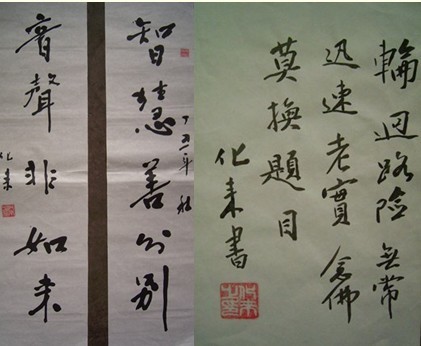 智慧善分別
丁丑年秋
音聲非如来
化来
輪迴路險無常
迅速老實念佛
莫換題目
化来書